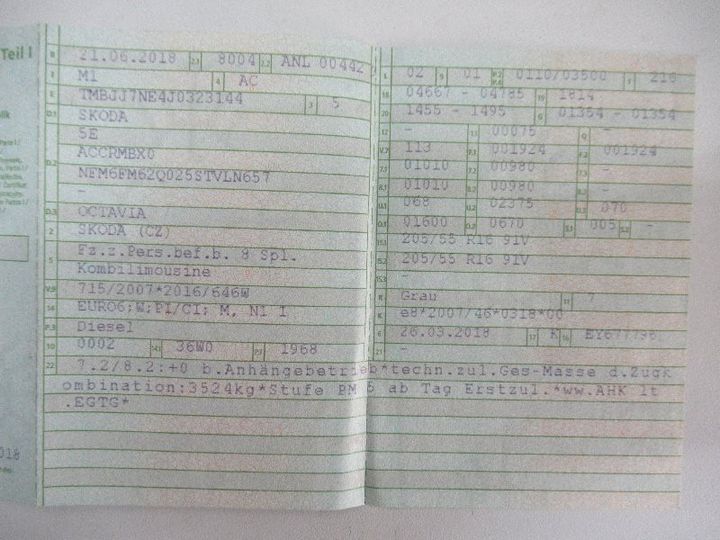 Teil I
B 21.06.2018 2.1 8004 2.2 ANL 00442
J M1 4 AC
E TMBJJ7NE4J0323144 3 5
D.1 SKODA
5E
D.2 ACCRMBX0
NFM6FM62Q025STVLN657
-
D.3 OCTAVIA
2 SKODA (CZ)
5 Fz.z.Pers.bef.b. 8 Spl.
Kombilimousine
V.9 715/2007*2016/646W
14 EURO6;W;PI/CI; M, N1 I
P.3 Diesel
10 0002 14.1 36W0 P.1 1968
L 02 9 01 P.2/P.4 0110/03500 T 210
18 04667 - 04785 19 1814
20 1455 - 1495 G 01354 - 01354
12 - 13 00075 Q -
V.7 113 F.1 001924 F.2 001924
7.1 01010 7.2 00980 7.3 -
8.1 01010 8.2 00980 8.3 -
U.1 068 U.2 02375 U.3 070
O.1 01600 O.2 0670 S.1 005 S.2 -
15.1 205/55 R16 91V
15.2 205/55 R16 91V
15.3 -
R Grau 11 7
K e8*2007/46*0318*00
6 26.03.2018 17 K 16
21 -
22 7.2/8.2:+0 b.Anhängebetrieb*techn.zul.Ges-Masse d.Zugk
ombination:3524kg*Stufe PM 5 ab Tag Erstzul.*ww.AHK lt
.EGTG*
018